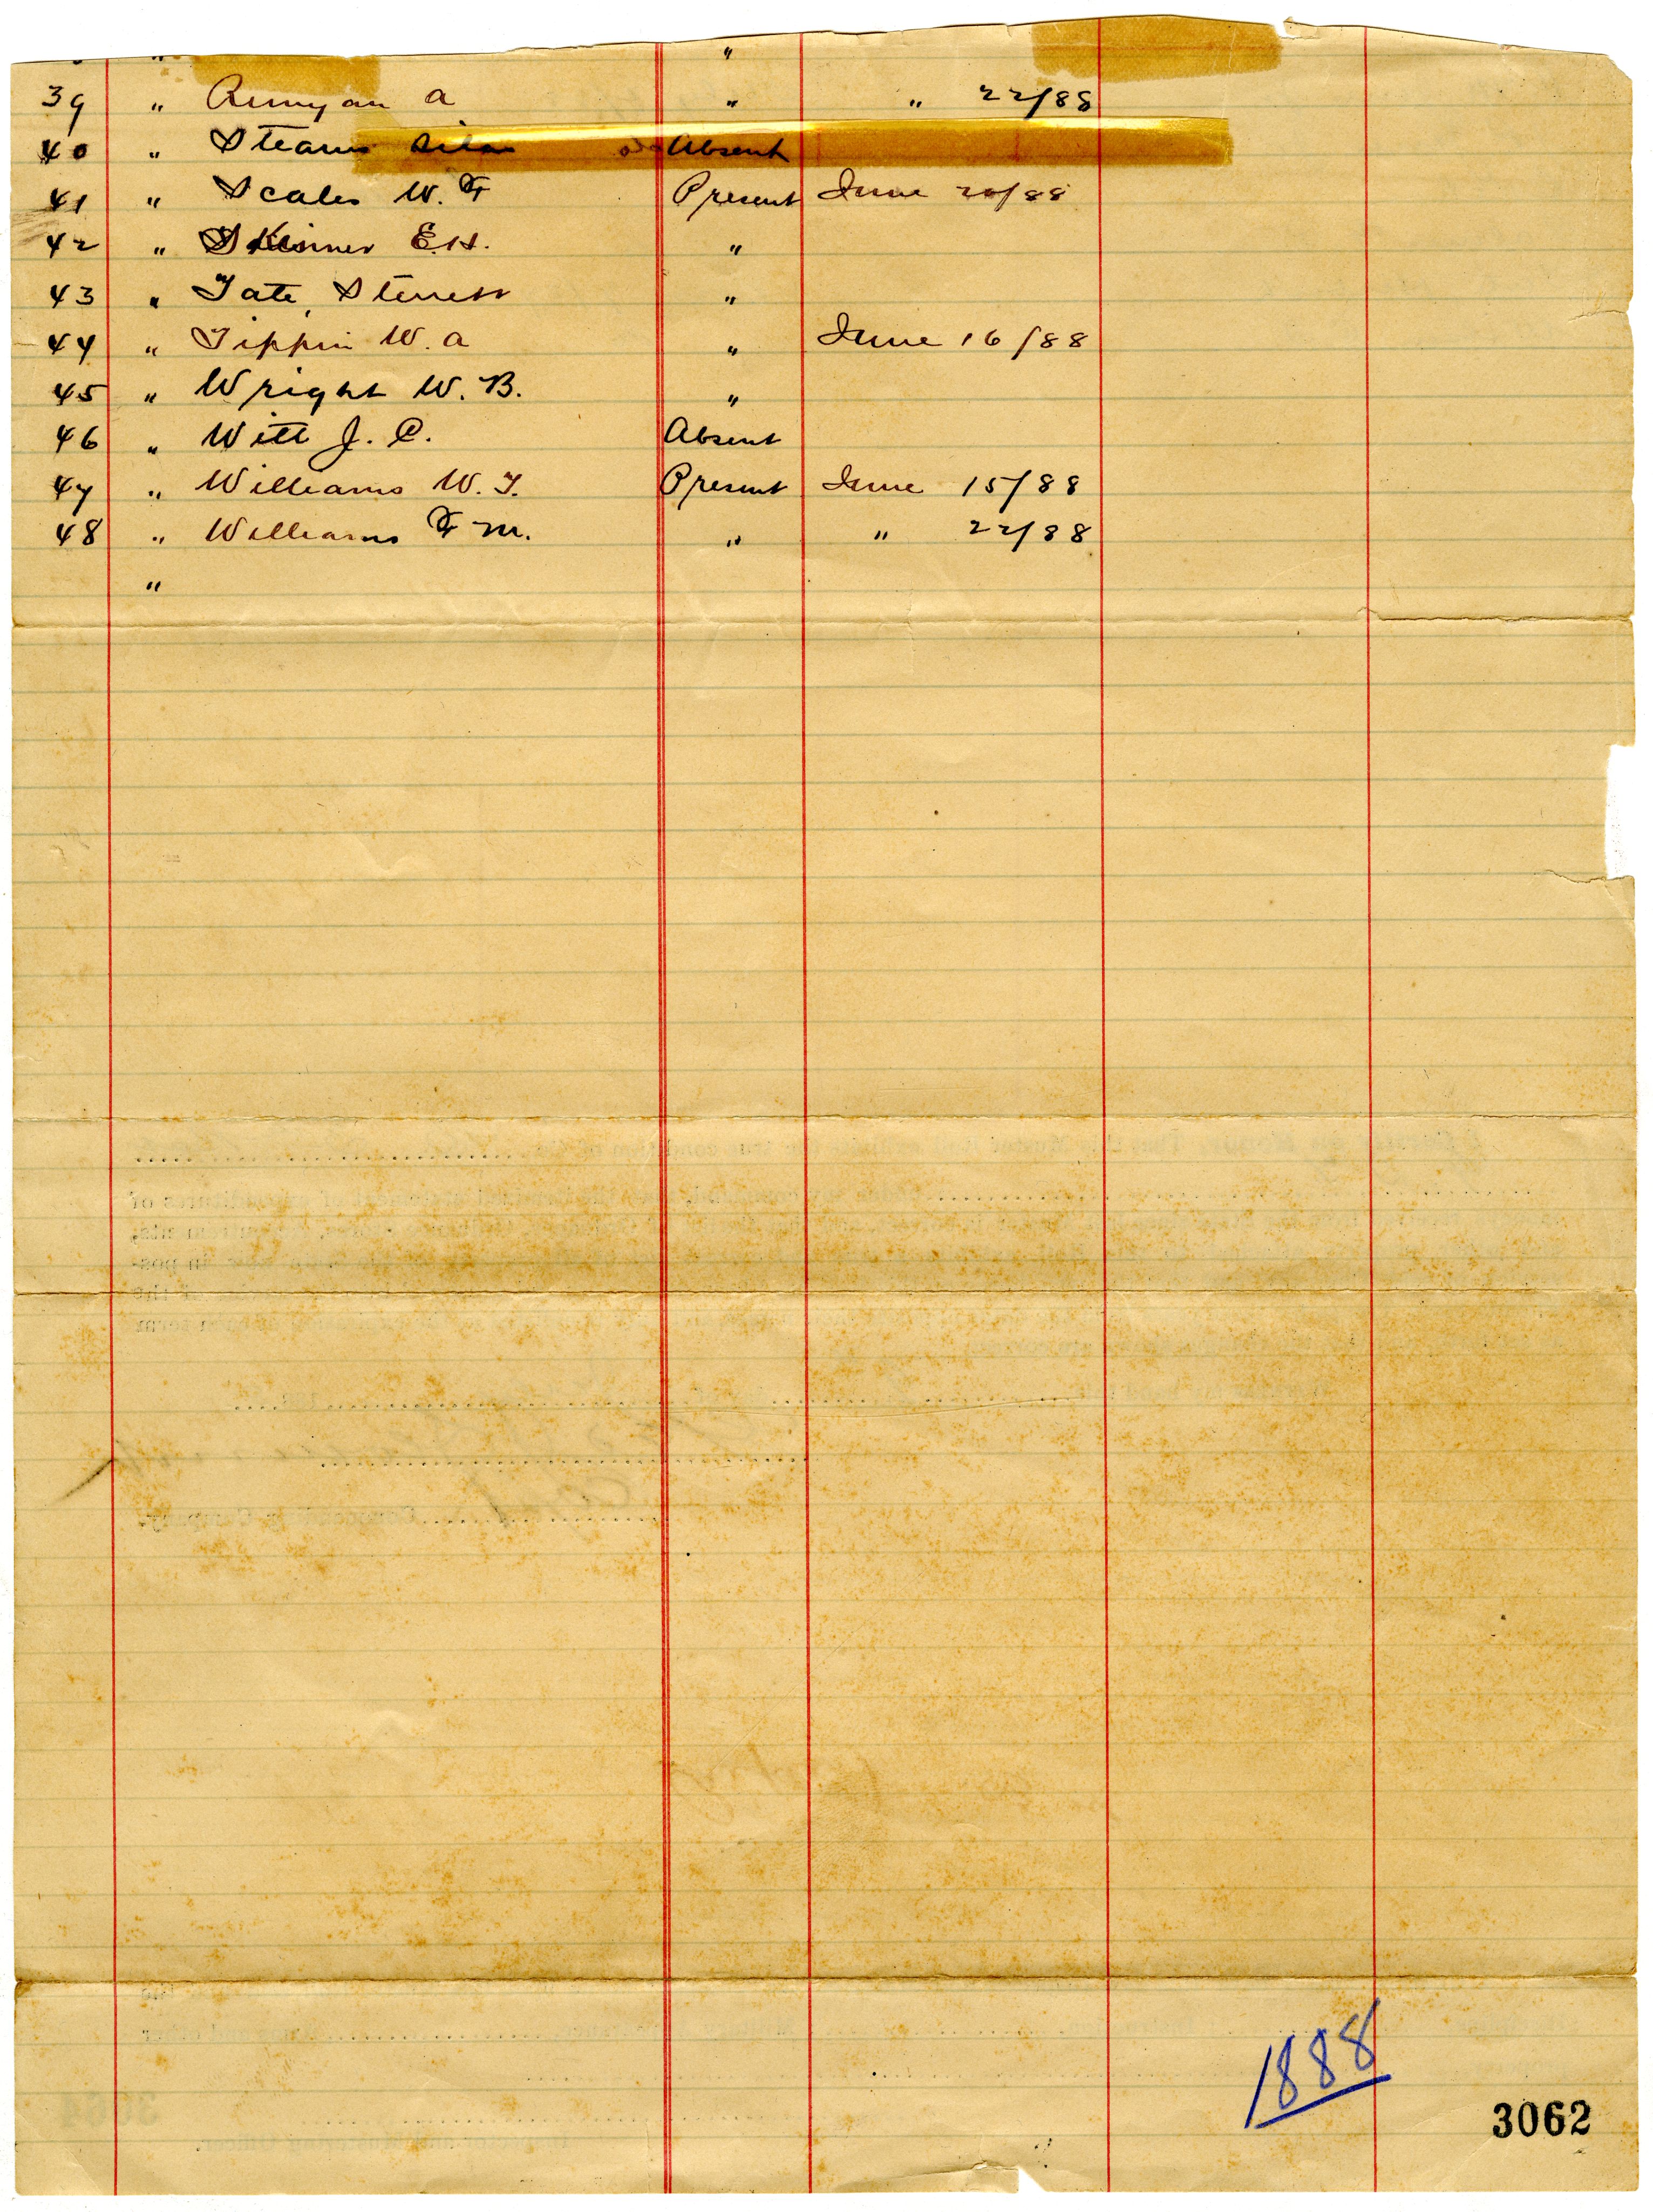 " "
39 " Runyan A " " 22/88
40 " Stearns Silas Absent
41 " Scales W. F Present June 20/88
42 " Skinner E.H. "
43 " Tate, Sterrett "
44 " Tippin W. A " June 16/88
45 " Wright W. B. "
46 " Witt J. C. Absent
47 " Williams W. T. Present June 15/88
48 " Williams F M. " " 22/88
"
1888
3062